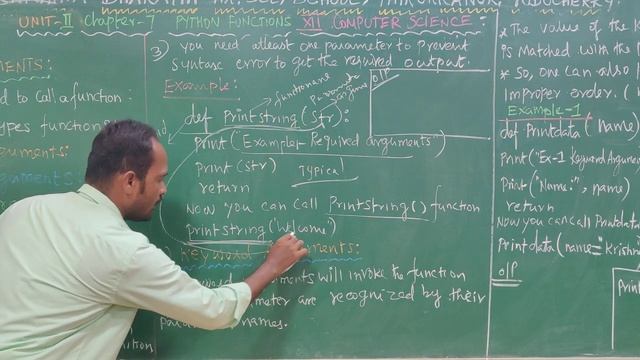 UNIT-II Chapter-7 PYTHON FUNCTIONS XII COMPUTER SCIENCE:
MENTS:
d to call a function:
ypes function
guments:
3) you need atleast one parameter to prevent
Syntax error to get the required output.
Example:
functioname
O/P
def Printstring (str):
Print ("Example- Required arguments")
Print (str) Typical
return
Now you can call Printstring() function
printstring ('Welcome')
Keyword
ments:
ments will invoke the function
meter are recognized by their
names.
* The value of the K
is Matched with the
* So, one can also
Improper order. (
Example-1
def Printdata (name)
Print("Ex-1 Keyword Argumen
Print("Name:", name)
return
Now you can call Printdata
Printdata (name="Krishn
O/P
Prin